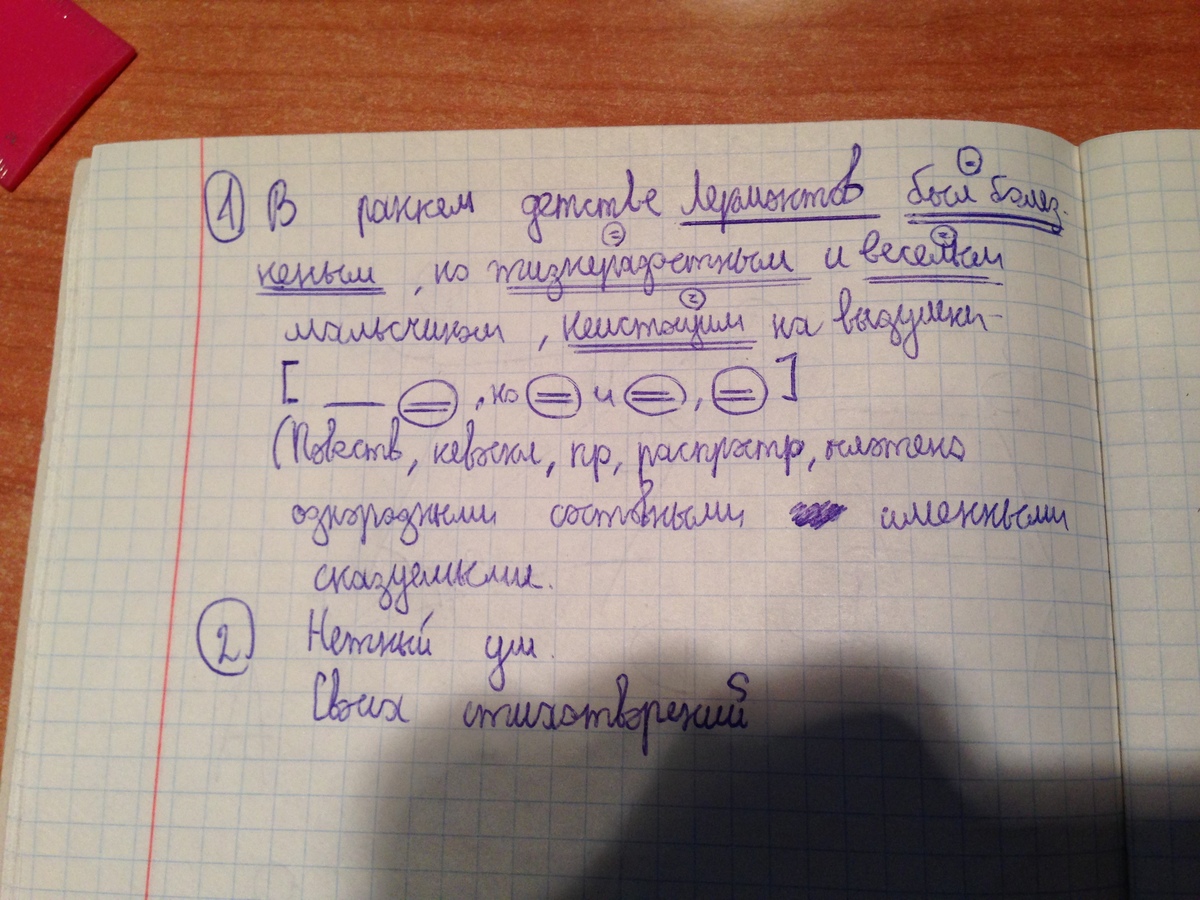 ① В раннем детстве Лермонтов был болез-
неным, но жизнерадостным и веселым
мальчиком, неистощим на выдумки.
[ __ = , но = и = , = ]
(Повеств, невоскл, пр, распростр, осложнено
однородными составными именными
сказуемыми.
② Нежный ум.
Своих стихотворений